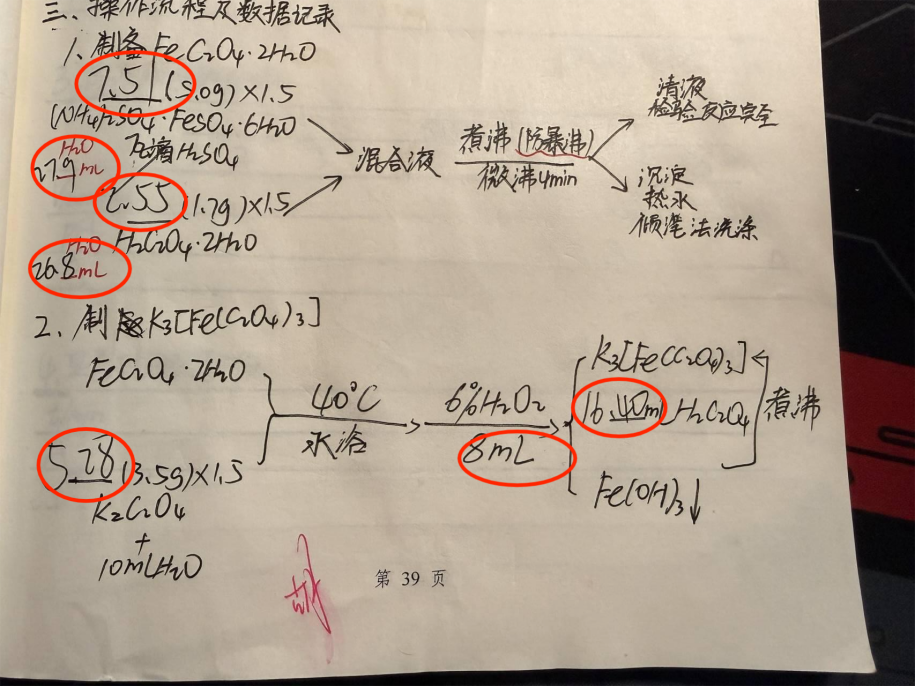 三、操作流程及数据记录
1、制备FeC2O4·2H2O
7.51 (5.0g)×1.5
(NH4)2SO4·FeSO4·6H2O
H2O 27.9mL
几滴H2SO4
2.55 (1.7g)×1.5
H2C2O4·2H2O
H2O 26.8mL
混合液
煮沸(防暴沸)
微沸4min
清液
检验反应完全
沉淀
热水
倾滗法洗涤
2、制备K3[Fe(C2O4)3]
FeC2O4·2H2O
5.28 (3.5g)×1.5
K2C2O4
+
10mLH2O
40°C
水浴
6%H2O2
8mL
K3[Fe(C2O4)3]
16.40mL H2C2O4
煮沸
Fe(OH)3↓
第 39 页